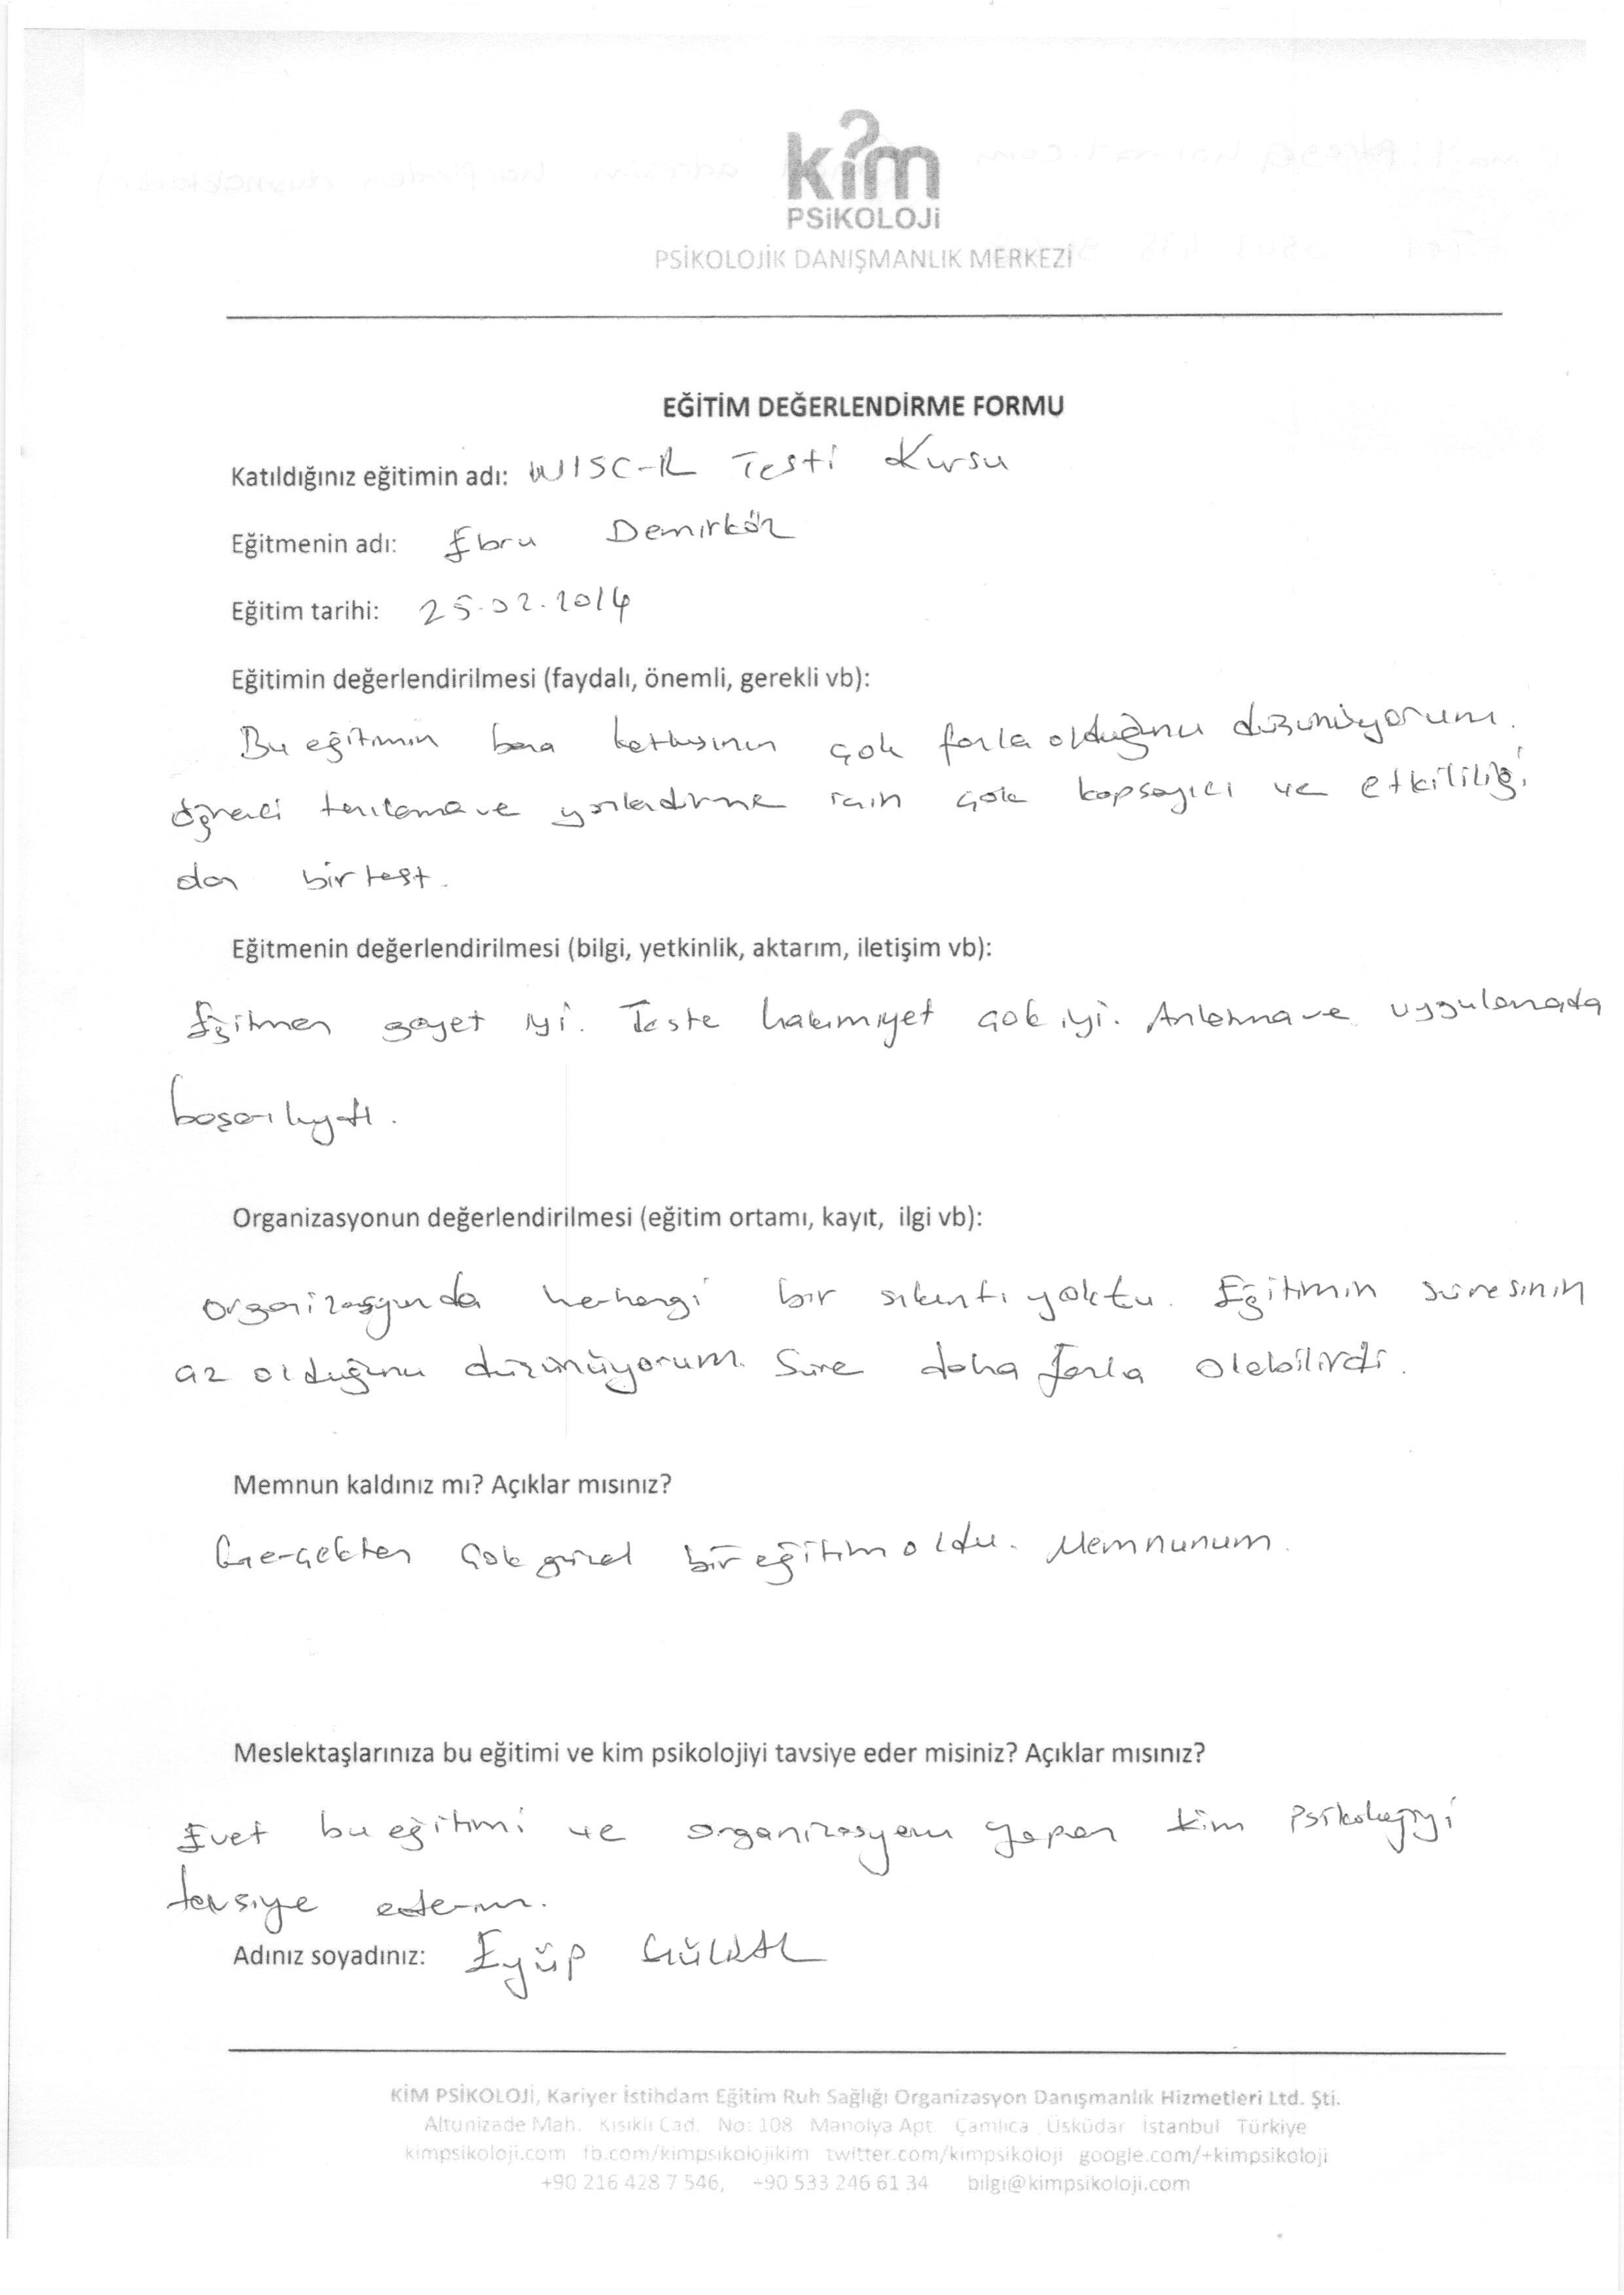 kim
PSİKOLOJİ
PSİKOLOJİK DANIŞMANLIK MERKEZİ
EĞİTİM DEĞERLENDİRME FORMU
Katıldığınız eğitimin adı: WISC-R Testi Kursu
Eğitmenin adı: Ebru Demirköz
Eğitim tarihi: 25.02.2014
Eğitimin değerlendirilmesi (faydalı, önemli, gerekli vb):
Bu eğitimin bana katkısının çok fazla olduğunu düşünüyorum.
öğrenci tanılama ve yönlendirme için çok kapsayıcı ve etkililiği
olan bir test.
Eğitmenin değerlendirilmesi (bilgi, yetkinlik, aktarım, iletişim vb):
Eğitmen gayet iyi. Teste hakimiyet çok iyi. Anlatma ve uygulamada
başarılıydı.
Organizasyonun değerlendirilmesi (eğitim ortamı, kayıt, ilgi vb):
Organizasyonda herhangi bir sıkıntı yoktu. Eğitimin süresinin
az olduğunu düşünüyorum. Süre daha fazla olabilirdi.
Memnun kaldınız mı? Açıklar mısınız?
Gerçekten çok güzel bir eğitim oldu. Memnunum.
Meslektaşlarınıza bu eğitimi ve kim psikolojiyi tavsiye eder misiniz? Açıklar mısınız?
Evet bu eğitimi ve organizasyonu yapan kim psikolojiyi
tavsiye ederim.
Adınız soyadınız: Eyüp
KİM PSİKOLOJİ, Kariyer İstihdam Eğitim Ruh Sağlığı Organizasyon Danışmanlık Hizmetleri Ltd. Şti.
Altunizade Mah. Kısıklı Cad. No: 108 Manolya Apt. Çamlıca Üsküdar İstanbul Türkiye
kimpsikoloji.com fb.com/kimpsikolojikim twitter.com/kimpsikoloji google.com/+kimpsikoloji
+90 216 428 7 546, +90 533 246 61 34 bilgi@kimpsikoloji.com